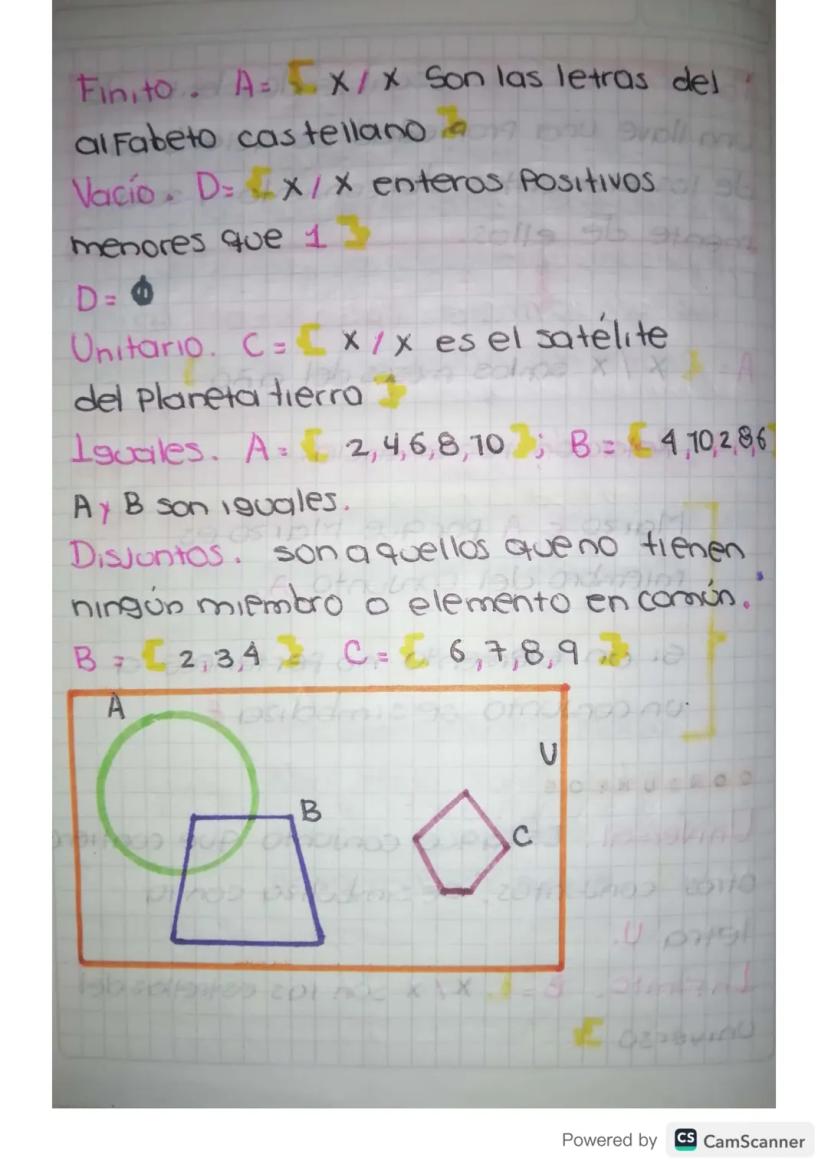 Finito. A= { x / x Son las letras del
alfabeto castellano }
Vacío. D= { x / x enteros Positivos
menores que 1 }
D= ϕ
Unitario. C= { x / x es el satélite
del Planeta tierra }
Iguales. A= { 2,4,6,8,10 }; B= { 4,10,2,8,6
A y B son iguales.
Disjuntos. son aquellos que no tienen
ningún miembro o elemento en común.
B = { 2,3,4 } C= { 6,7,8,9 }
A
U
B
C
Powered by CS CamScanner